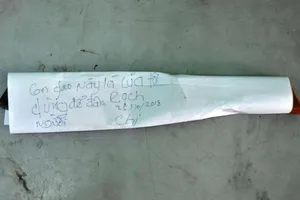 Con dao này là của tôi
dùng để đâm Bạch
26/10/2013
người Chí